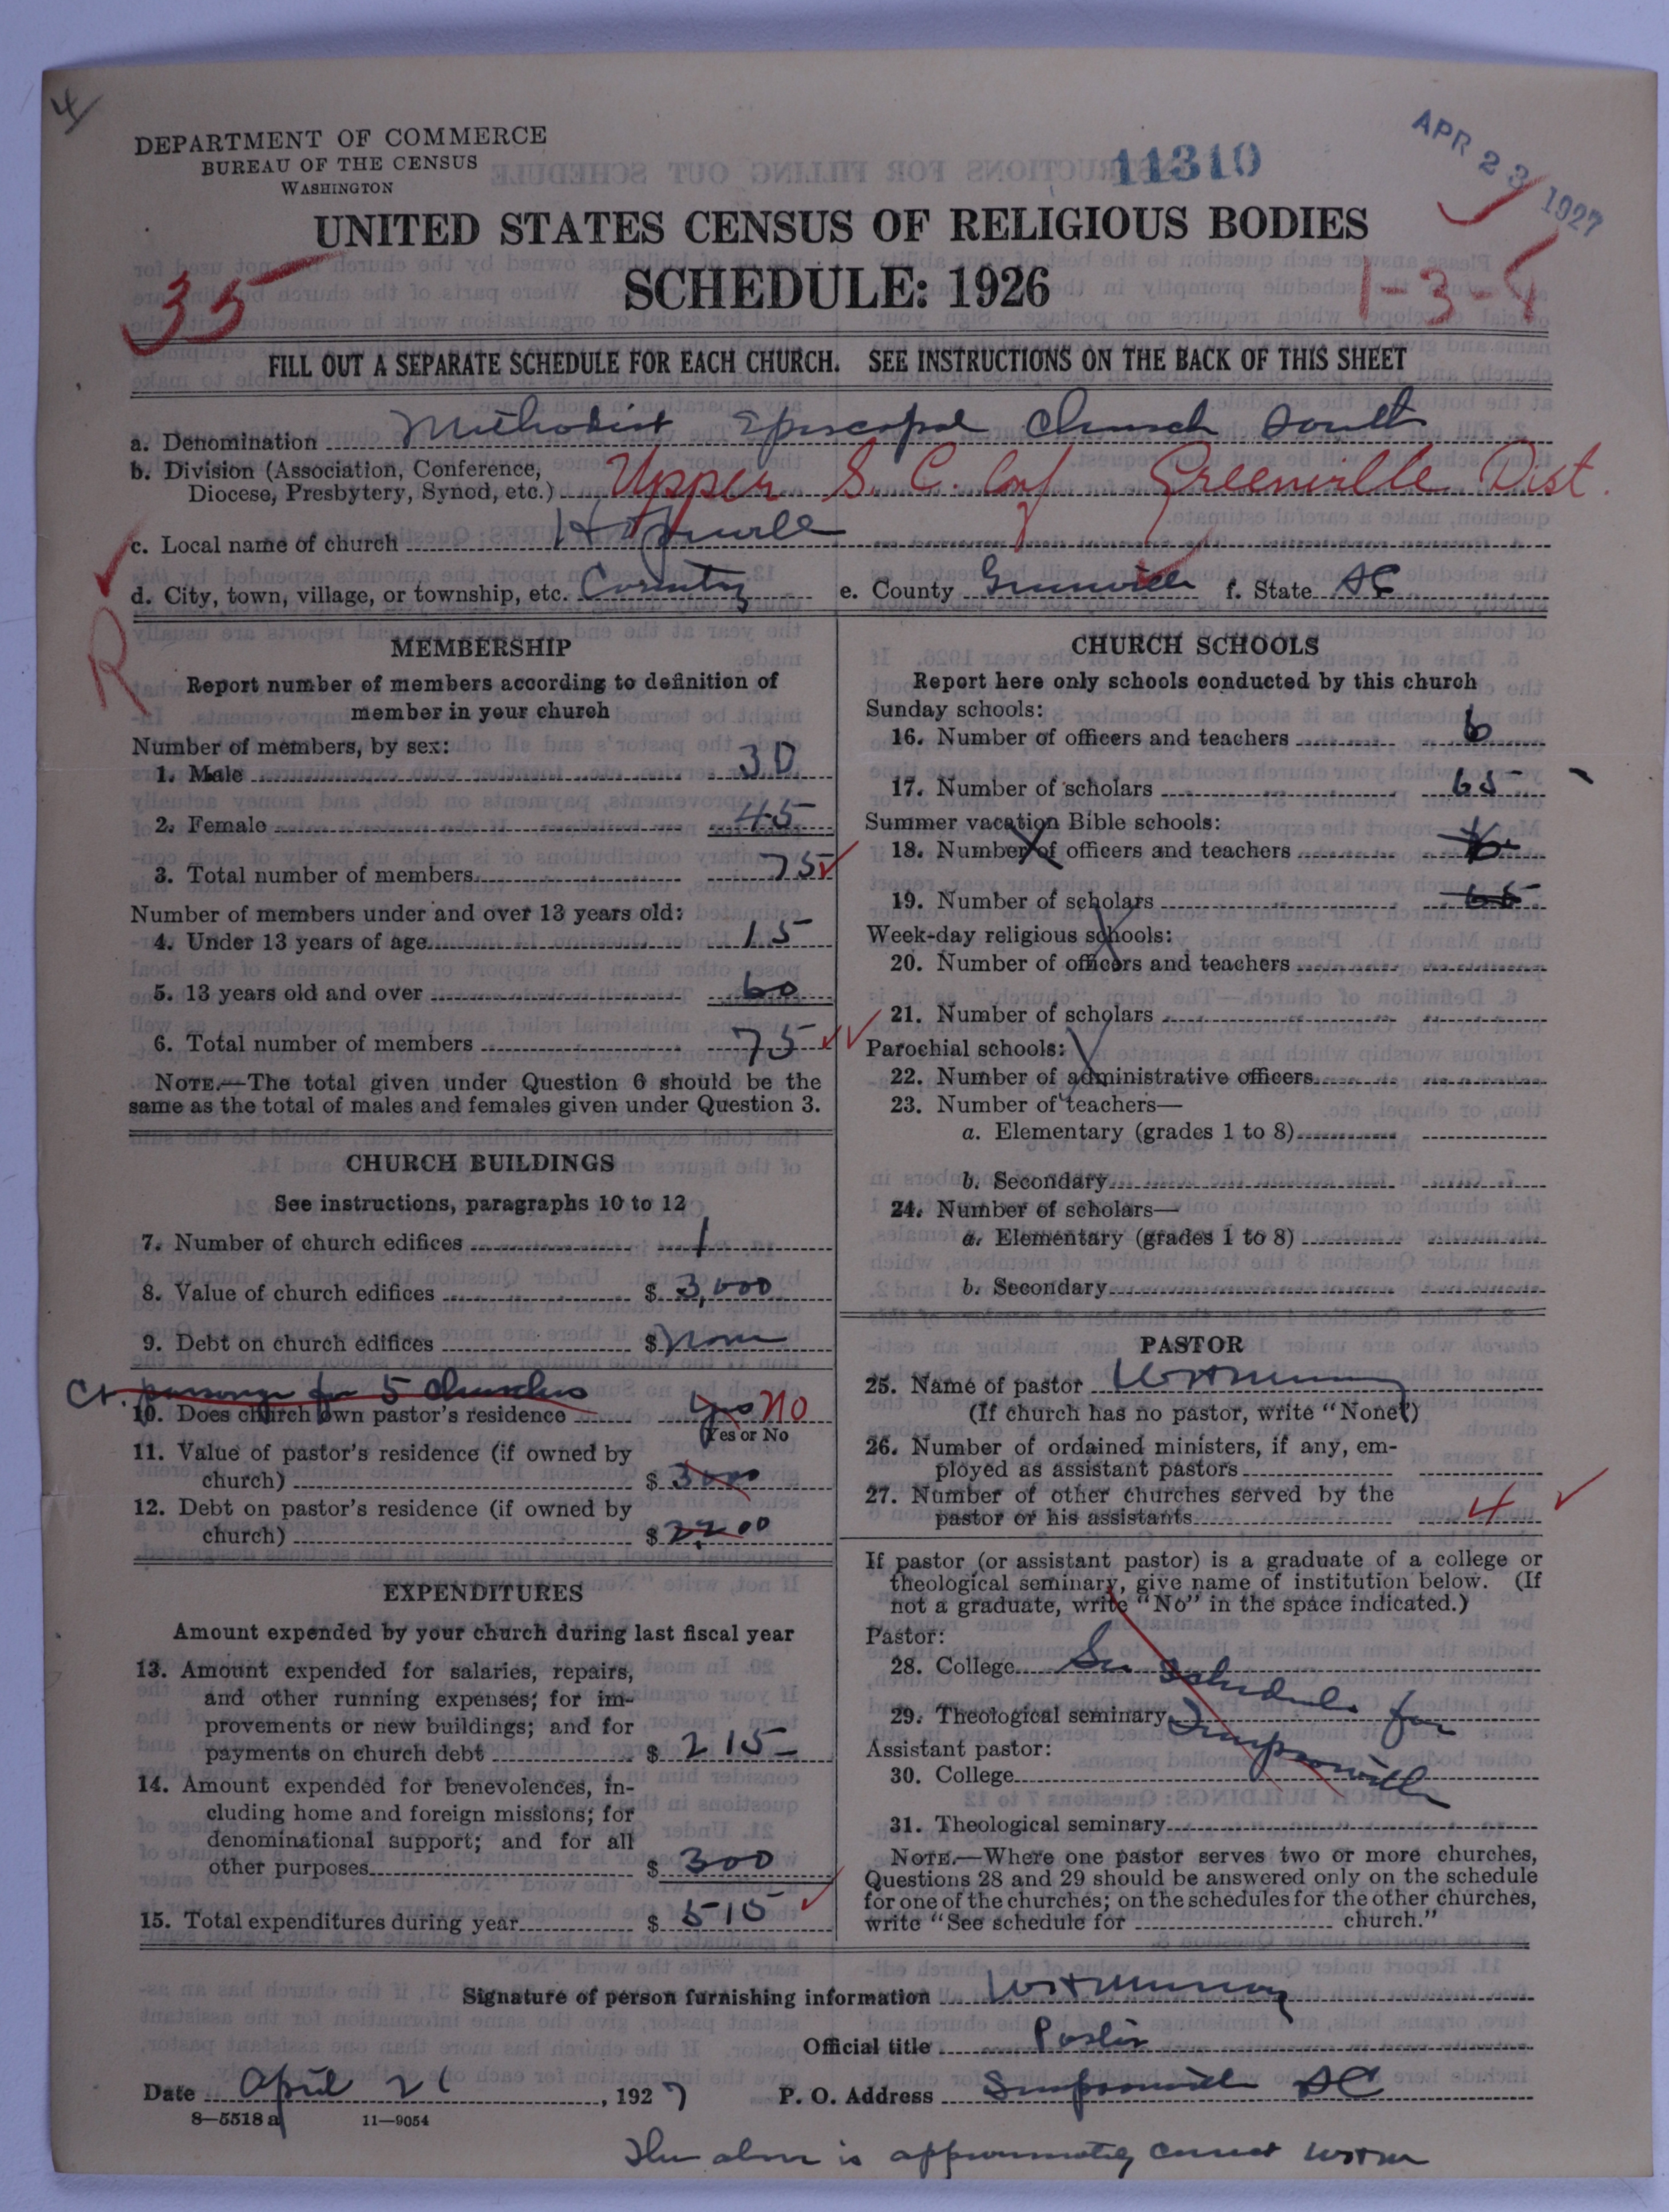 4
DEPARTMENT OF COMMERCE
BUREAU OF THE CENSUS
WASHINGTON
11310
APR 23 1927
UNITED STATES CENSUS OF RELIGIOUS BODIES
SCHEDULE: 1926
35
1-3-
FILL OUT A SEPARATE SCHEDULE FOR EACH CHURCH. SEE INSTRUCTIONS ON THE BACK OF THIS SHEET
a. Denomination Methodist Episcopal Church South
b. Division (Association, Conference,
Diocese, Presbytery, Synod, etc.) Upper S. C. Conf Greenville Dist.
c. Local name of church
d. City, town, village, or township, etc. Country e. County Greenville f. State SC
R
MEMBERSHIP
Report number of members according to definition of
member in your church
Number of members, by sex:
1. Male 30
2. Female 45
3. Total number of members 75
Number of members under and over 13 years old:
4. Under 13 years of age 15
5. 13 years old and over 60
6. Total number of members 75
NOTE.—The total given under Question 6 should be the
same as the total of males and females given under Question 3.
CHURCH BUILDINGS
See instructions, paragraphs 10 to 12
7. Number of church edifices 1
8. Value of church edifices $ 3,000
9. Debt on church edifices $ None
Ct. parsonage for 5 Churches
10. Does church own pastor's residence yes No
Yes or No
11. Value of pastor's residence (if owned by
church) $ 3000
12. Debt on pastor's residence (if owned by
church) $ 2200
EXPENDITURES
Amount expended by your church during last fiscal year
13. Amount expended for salaries, repairs,
and other running expenses; for im-
provements or new buildings; and for
payments on church debt $ 215-
14. Amount expended for benevolences, in-
cluding home and foreign missions; for
denominational support; and for all
other purposes $ 300
15. Total expenditures during year $ 515
CHURCH SCHOOLS
Report here only schools conducted by this church
Sunday schools:
16. Number of officers and teachers 6
17. Number of scholars 65
Summer vacation Bible schools:
18. Number of officers and teachers 6
19. Number of scholars 65
Week-day religious schools:
20. Number of officers and teachers
21. Number of scholars
Parochial schools:
22. Number of administrative officers
23. Number of teachers—
a. Elementary (grades 1 to 8)
b. Secondary
24. Number of scholars—
a. Elementary (grades 1 to 8)
b. Secondary
PASTOR
25. Name of pastor
(If church has no pastor, write "None")
26. Number of ordained ministers, if any, em-
ployed as assistant pastors
27. Number of other churches served by the
pastor or his assistants 4
If pastor (or assistant pastor) is a graduate of a college or
theological seminary, give name of institution below. (If
not a graduate, write "No" in the space indicated.)
Pastor:
28. College See Schedule for
29. Theological seminary Simpsonville
Assistant pastor:
30. College
31. Theological seminary
NOTE.—Where one pastor serves two or more churches,
Questions 28 and 29 should be answered only on the schedule
for one of the churches; on the schedules for the other churches,
write "See schedule for church."
Signature of person furnishing information
Official title Pastor
Date April 21, 1927 P. O. Address Simpsonville SC
8—5518 a 11—9054
The above is approximately correct